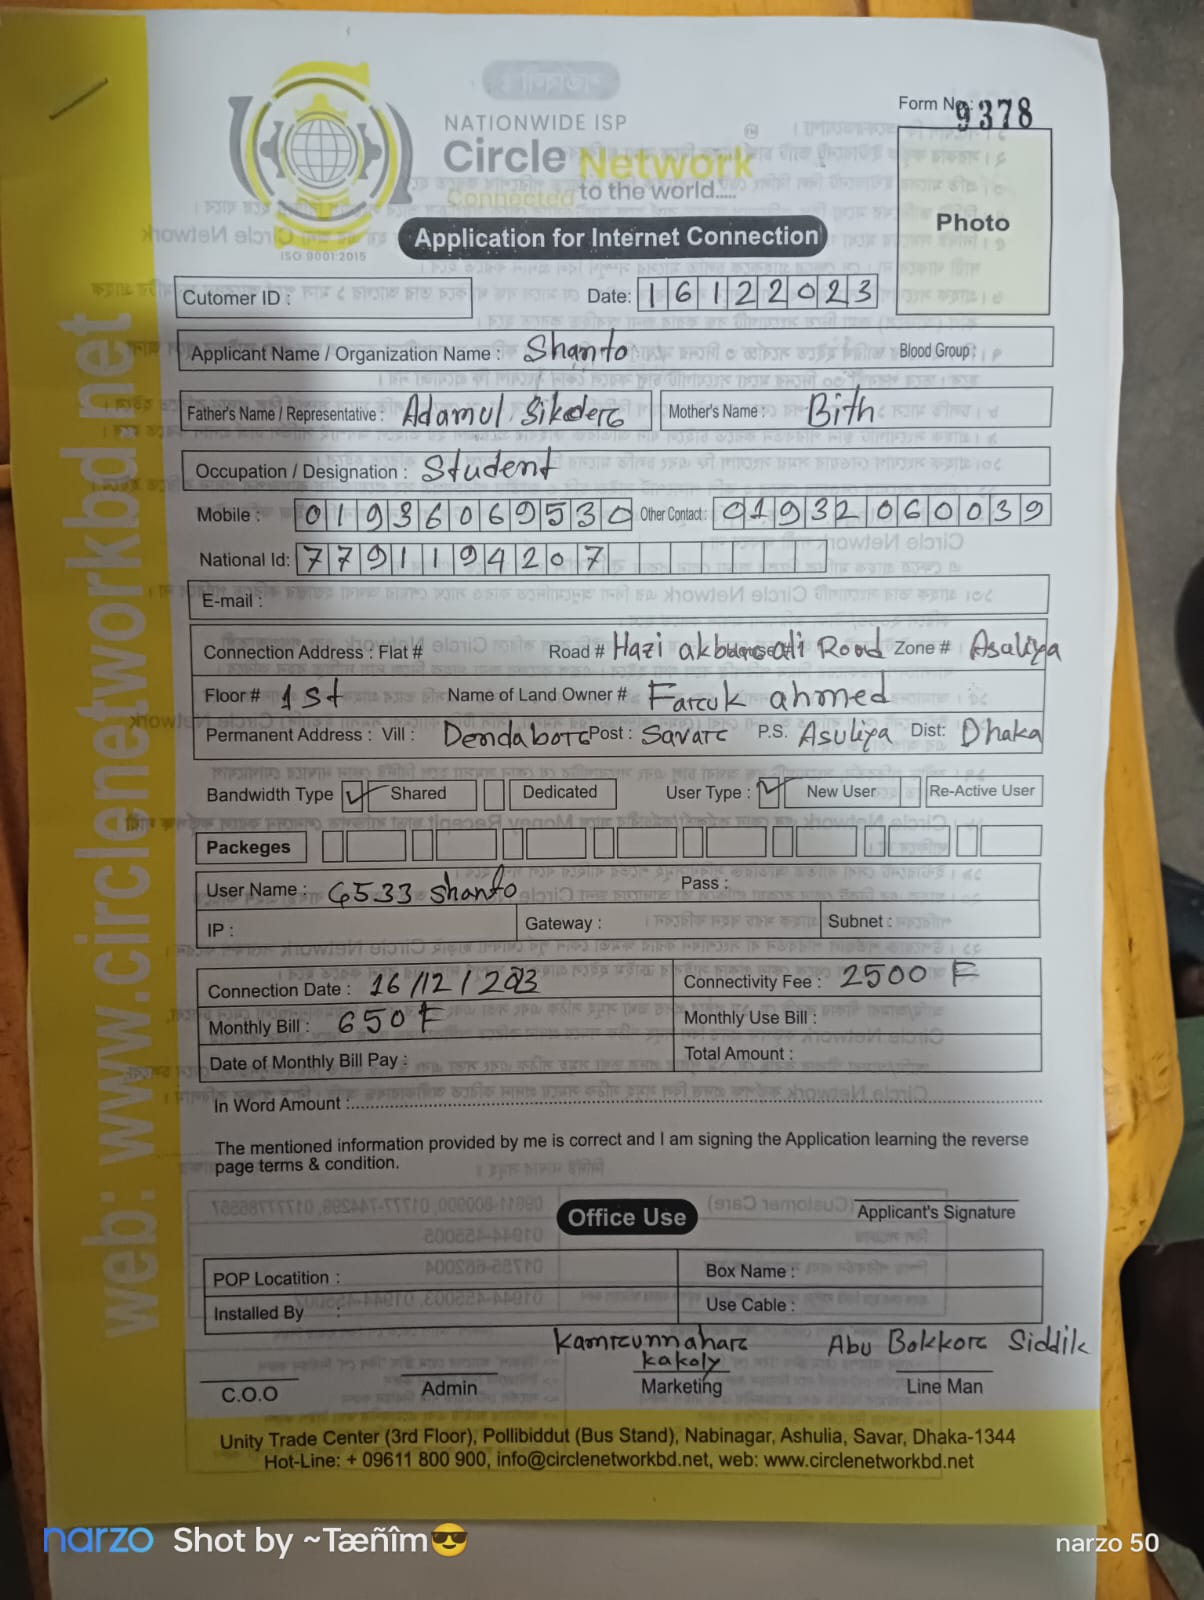 Form No: 9378
NATIONWIDE ISP
Circle Network
Connected to the world.....
ISO 9001:2015
Photo
Application for Internet Connection
Cutomer ID :
Date: 16122023
Applicant Name / Organization Name : Shanto Blood Group :
Father's Name / Representative : Adamul Sikder Mother's Name : Bith
Occupation / Designation : Student
Mobile : 01936069530 Other Contact : 01932060039
National Id: 7791194207
E-mail :
Connection Address : Flat # Road # Hazi akbar ali Road Zone # Asuliya
Floor # 1st Name of Land Owner # Faruk ahmed
Permanent Address : Vill : Dendabor Post : Savar P.S. Asuliya Dist: Dhaka
Bandwidth Type ✓ Shared Dedicated User Type : ✓ New User Re-Active User
Packeges
User Name : 6533 shanto Pass :
IP : Gateway : Subnet :
Connection Date : 16/12/2023 Connectivity Fee : 2500 F
Monthly Bill : 650 F Monthly Use Bill :
Date of Monthly Bill Pay : Total Amount :
In Word Amount :
The mentioned information provided by me is correct and I am signing the Application learning the reverse
page terms & condition.
Office Use
Applicant's Signature
POP Locatition : Box Name :
Installed By : Use Cable :
Kamrunnahar Abu Bokkor Siddik
kakoly
C.O.O Admin Marketing Line Man
Unity Trade Center (3rd Floor), Pollibiddut (Bus Stand), Nabinagar, Ashulia, Savar, Dhaka-1344
Hot-Line: + 09611 800 900, info@circlenetworkbd.net, web: www.circlenetworkbd.net
web: www.circlenetworkbd.net
narzo Shot by ~Tæñîm😎 narzo 50